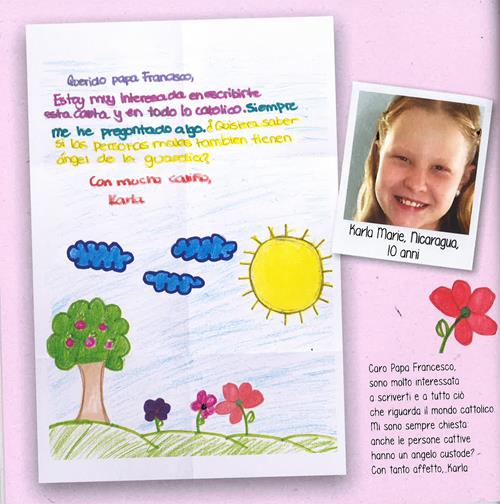 Querido papa Francisco,
Estoy muy interesada en escribirte
esta carta y en todo lo catolico. Siempre
me he pregontado algo. ¿Quisiera saber
si las personas malas tambien tienen
ángel de la guardia?
Con mucho cariño,
Karla
Karla Marie, Nicaragua,
10 anni
Caro Papa Francesco,
sono molto interessata
a scriverti e a tutto ciò
che riguarda il mondo cattolico
Mi sono sempre chiesta
anche le persone cattive
hanno un angelo custode?
Con tanto affetto, Karla